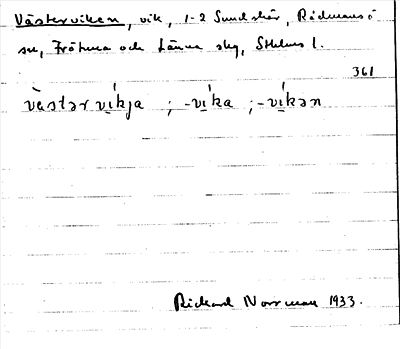 Västerviken, vik, 1-2 Sundskär, Rådmansö
sn, Frötuna och Länna skg, Sthlms l.
361
västərvikja ; -vika ; -vikən
Rickard Norrman 1933.